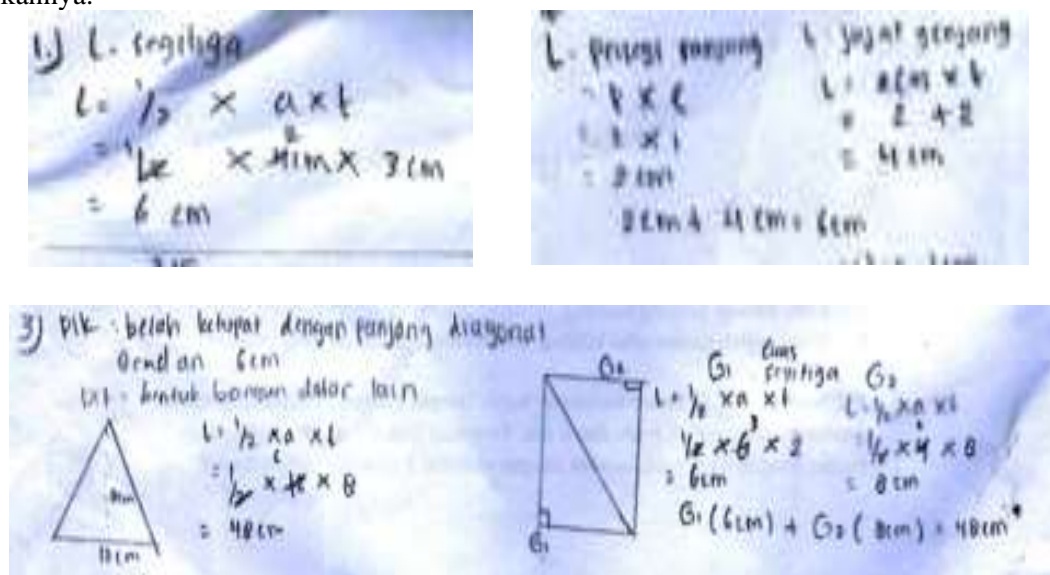 1.) L. segitiga
L = 1/2 × a × t
= 1/2 × 4cm × 3 cm
2
= 6 cm
L. persegi panjang
= p × l
= 2 × 1
= 2 cm
L jajar genjang
L = alas × t
= 2 + 2
= 4 cm
2 cm + 4 cm = 6cm
3) Dik : belah ketupat dengan panjang diagonal
8cm dan 6cm
Dit = bentuk bangun datar lain
8cm
12cm
L = 1/2 × a × t
6
= 1/2 × 12 × 8
= 48cm
G2
G1
G1
Luas segitiga
L = 1/2 × a × t
3
1/2 × 6 × 2
= 6cm
G2
L = 1/2 × a × t
1/2 × 4 × 8
= 8 cm
G1 (6cm) + G2 ( 8cm) = 48cm